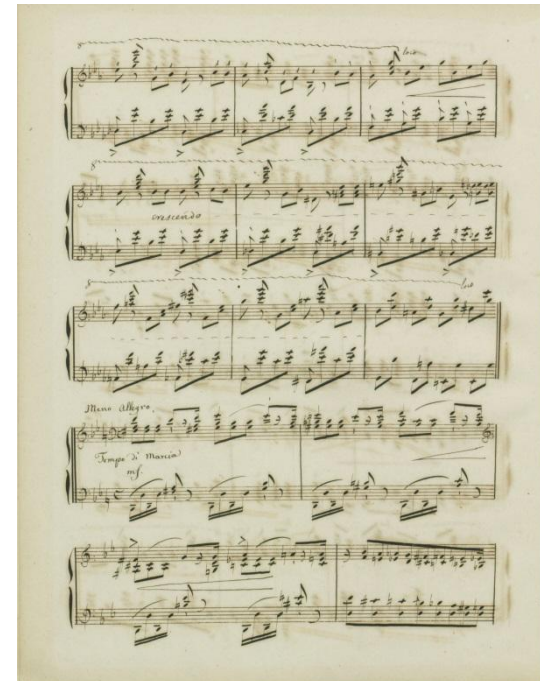 8 loco
8
crescendo
8 loco
Meno Allegro.
Tempo di Marcia
mf.